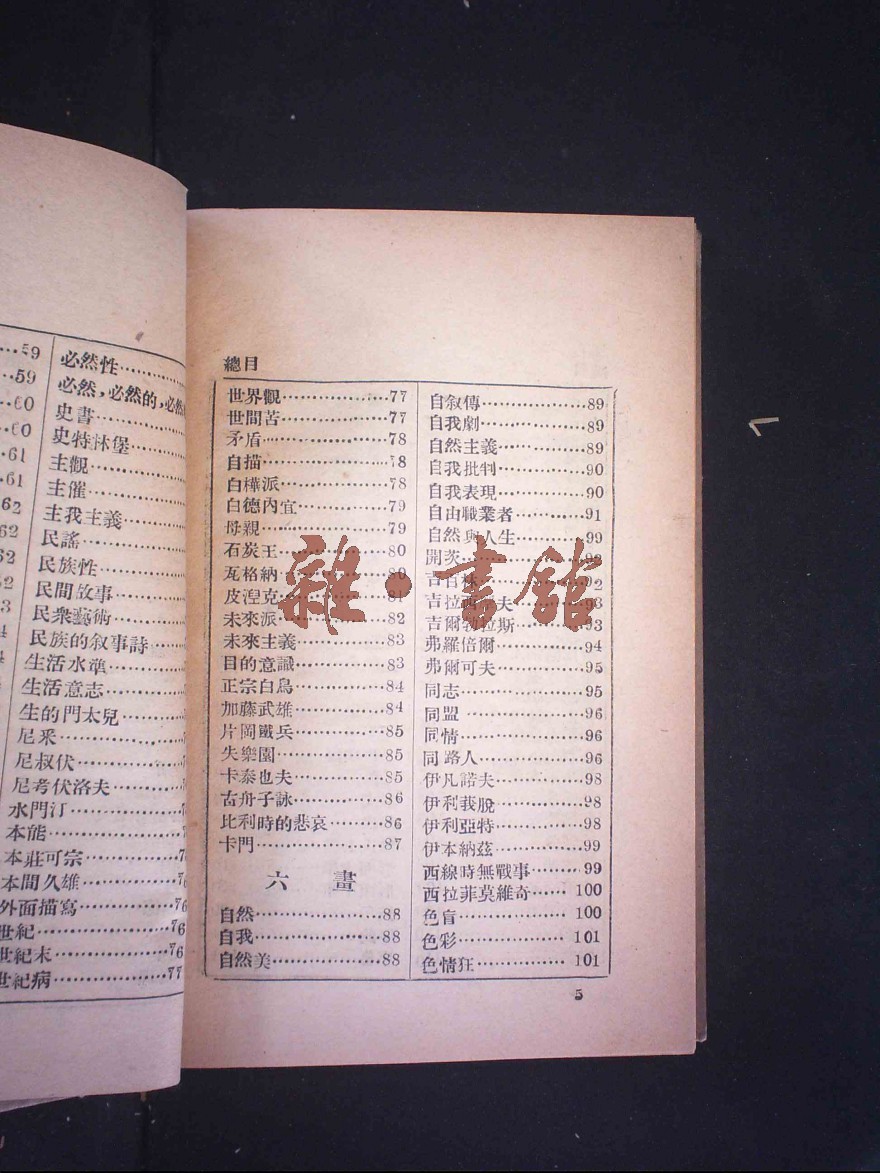 …59
…59
…60
…60
…61
…61
62
62
必然性……………
必然,必然的,必然
史書……………
史特林堡…………
主觀……………
主催……………
主我主義…………
民謠……………
民族性……………
民間故事…………
民衆藝術…………
民族的叙事詩……
生活水準…………
生活意志…………
生的門太兒………
尼采……………
尼叔伏……………
尼考伏洛夫………
水門汀……………
本能……………
本莊可宗…………
本間久雄…………
外面描寫……………76
世紀……………76
世紀末……………76
世紀病……………77
總目
世界觀……………77
世間苦……………77
矛盾……………78
自描……………78
白樺派……………78
白德內宜……………79
母親……………79
石炭王……………80
瓦格納……………80
皮湼克……………81
未來派……………82
未來主義……………83
目的意識……………83
正宗白鳥……………84
加藤武雄……………84
片岡鐵兵……………85
失樂園……………85
卡泰也夫……………85
古舟子詠……………86
比利時的悲哀………86
卡門……………87
六畫
自然……………88
自我……………88
自然美……………88
自叙傳……………89
自我劇……………89
自然主義……………89
自我批判……………90
自我表現……………90
自由職業者…………91
自然與人生…………99
開茨……………92
吉百林……………92
吉拉西莫夫…………93
吉爾勃拉斯…………93
弗羅倍爾……………94
弗爾可夫……………95
同志……………95
同盟……………96
同情……………96
同路人……………96
伊凡諾夫……………98
伊利莪脫……………98
伊利亞特……………98
伊本納茲……………99
西線時無戰事………99
西拉菲莫維奇……100
色盲……………100
色彩……………101
色情狂……………101
5
雜·書館